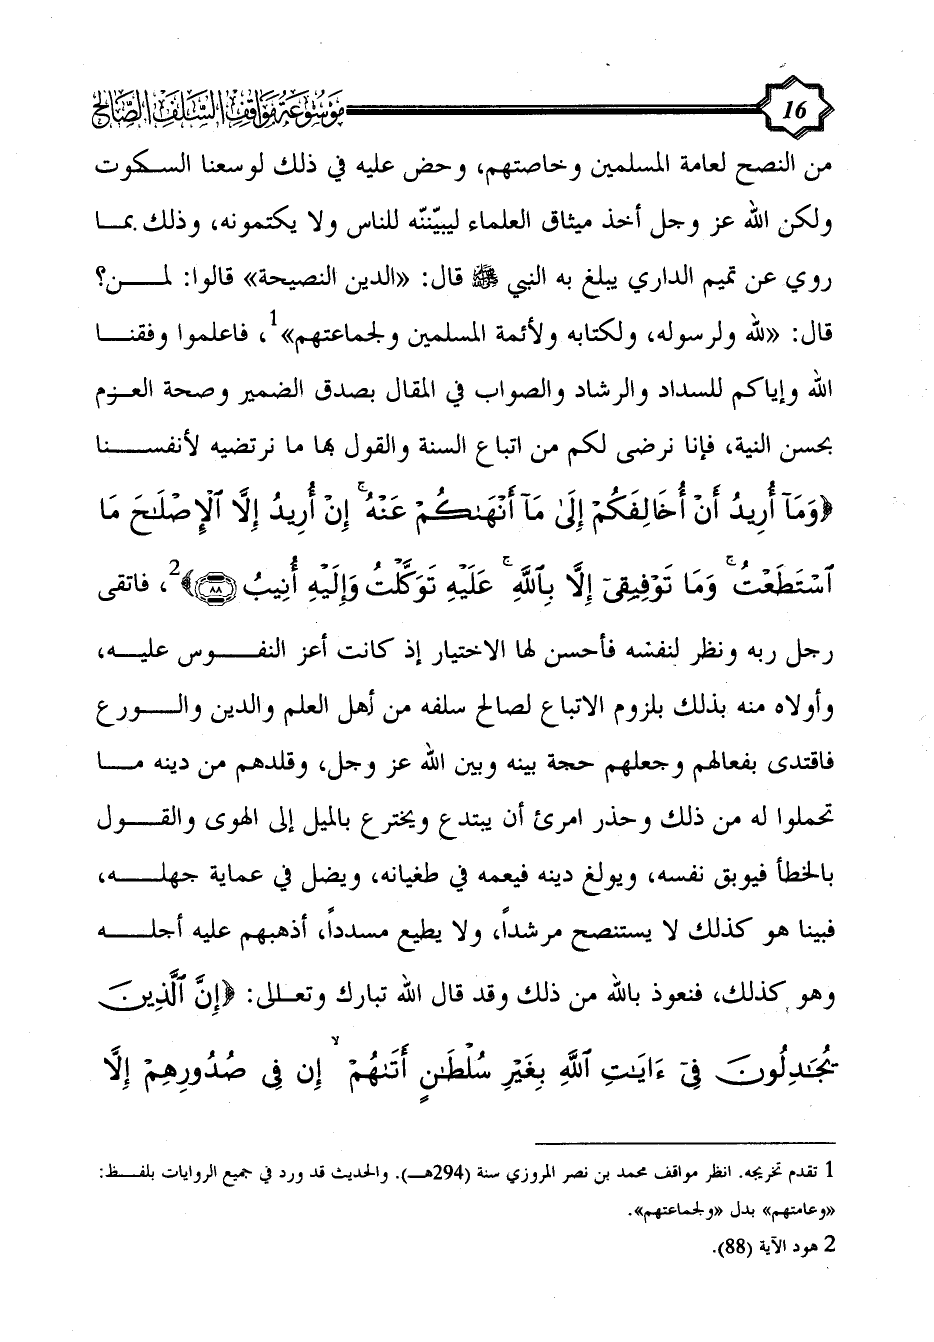 16
موسوعة مواقف السلف الصالح
من النصح لعامة المسلمين وخاصتهم، وحض عليه في ذلك لوسعنا السكوت
ولكن الله عز وجل أخذ ميثاق العلماء ليبيّننّه للناس ولا يكتمونه، وذلك بما
روي عن تميم الداري يبلغ به النبي ﷺ قال: «الدين النصيحة» قالوا: لمن؟
قال: «لله ولرسوله، ولكتابه ولأئمة المسلمين ولجماعتهم»1، فاعلموا وفقنا
الله وإياكم للسداد والرشاد والصواب في المقال بصدق الضمير وصحة العزم
بحسن النية، فإنا نرضى لكم من اتباع السنة والقول بها ما نرتضيه لأنفسنا
﴿وَمَآ أُرِيدُ أَنْ أُخَالِفَكُمْ إِلَىٰ مَآ أَنْهَىٰكُمْ عَنْهُ ۚ إِنْ أُرِيدُ إِلَّا ٱلْإِصْلَٰحَ مَا
ٱسْتَطَعْتُ ۚ وَمَا تَوْفِيقِىٓ إِلَّا بِٱللَّهِ ۚ عَلَيْهِ تَوَكَّلْتُ وَإِلَيْهِ أُنِيبُ ٨٨﴾2، فاتقى
رجل ربه ونظر لنفسه فأحسن لها الاختيار إذ كانت أعز النفوس عليه،
وأولاه منه بذلك بلزوم الاتباع لصالح سلفه من أهل العلم والدين والورع
فاقتدى بفعالهم وجعلهم حجة بينه وبين الله عز وجل، وقلدهم من دينه ما
تحملوا له من ذلك وحذر امرئ أن يبتدع ويخترع بالميل إلى الهوى والقول
بالخطأ فيوبق نفسه، ويولغ دينه فيعمه في طغيانه، ويضل في عماية جهله،
فبينا هو كذلك لا يستنصح مرشداً، ولا يطيع مسدداً، أذهبهم عليه أجله
وهو كذلك، فنعوذ بالله من ذلك وقد قال الله تبارك وتعالى: ﴿إِنَّ ٱلَّذِينَ
يُجَٰدِلُونَ فِىٓ ءَايَٰتِ ٱللَّهِ بِغَيْرِ سُلْطَٰنٍ أَتَىٰهُمْ ۙ إِن فِى صُدُورِهِمْ إِلَّا
1 تقدم تخريجه. انظر مواقف محمد بن نصر المروزي سنة (294هـ). والحديث قد ورد في جميع الروايات بلفظ:
«وعامتهم» بدل «ولجماعتهم».
2 هود الآية (88).